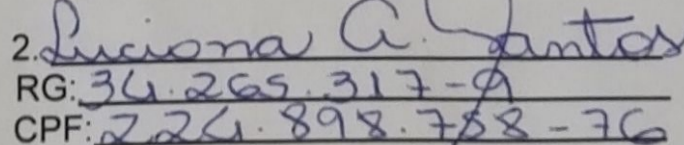 2. Luciana A. Santos
RG: 34.265.317-9
CPF: 224.898.788-76